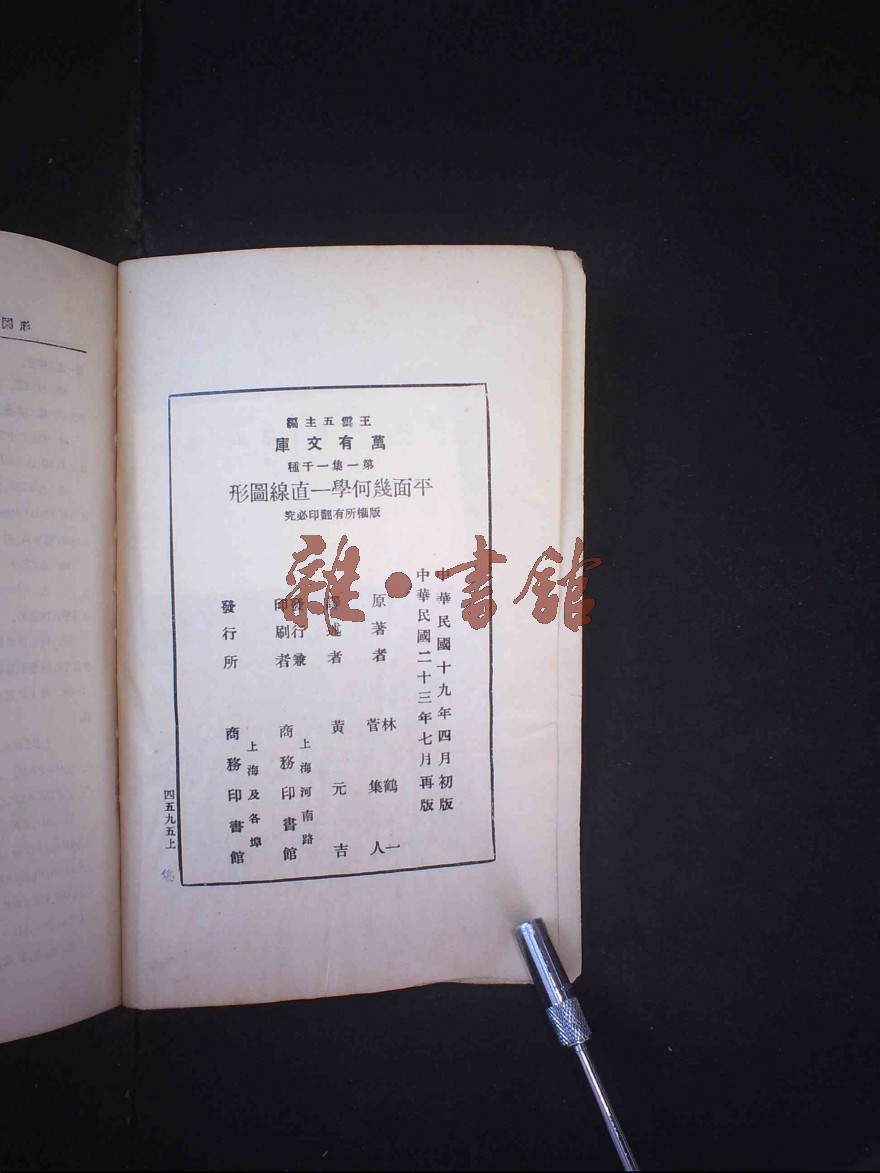 王雲五主編
萬有文庫
第一集一千種
平面幾何學—直線圖形
版權所有翻印必究
中華民國十九年四月初版
中華民國二十三年七月再版
原著者 林鶴一 菅集人
譯述者 黃元吉
發行兼印刷者 上海河南路 商務印書館
發行所 上海及各埠 商務印書館
四五九五上
雜·書館